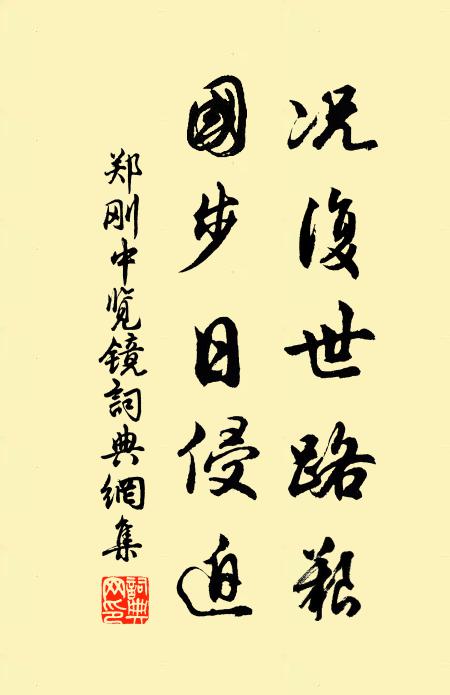 况復世路艱
國步日侵迫
郑刚中览镜詞典網集
詞典網印